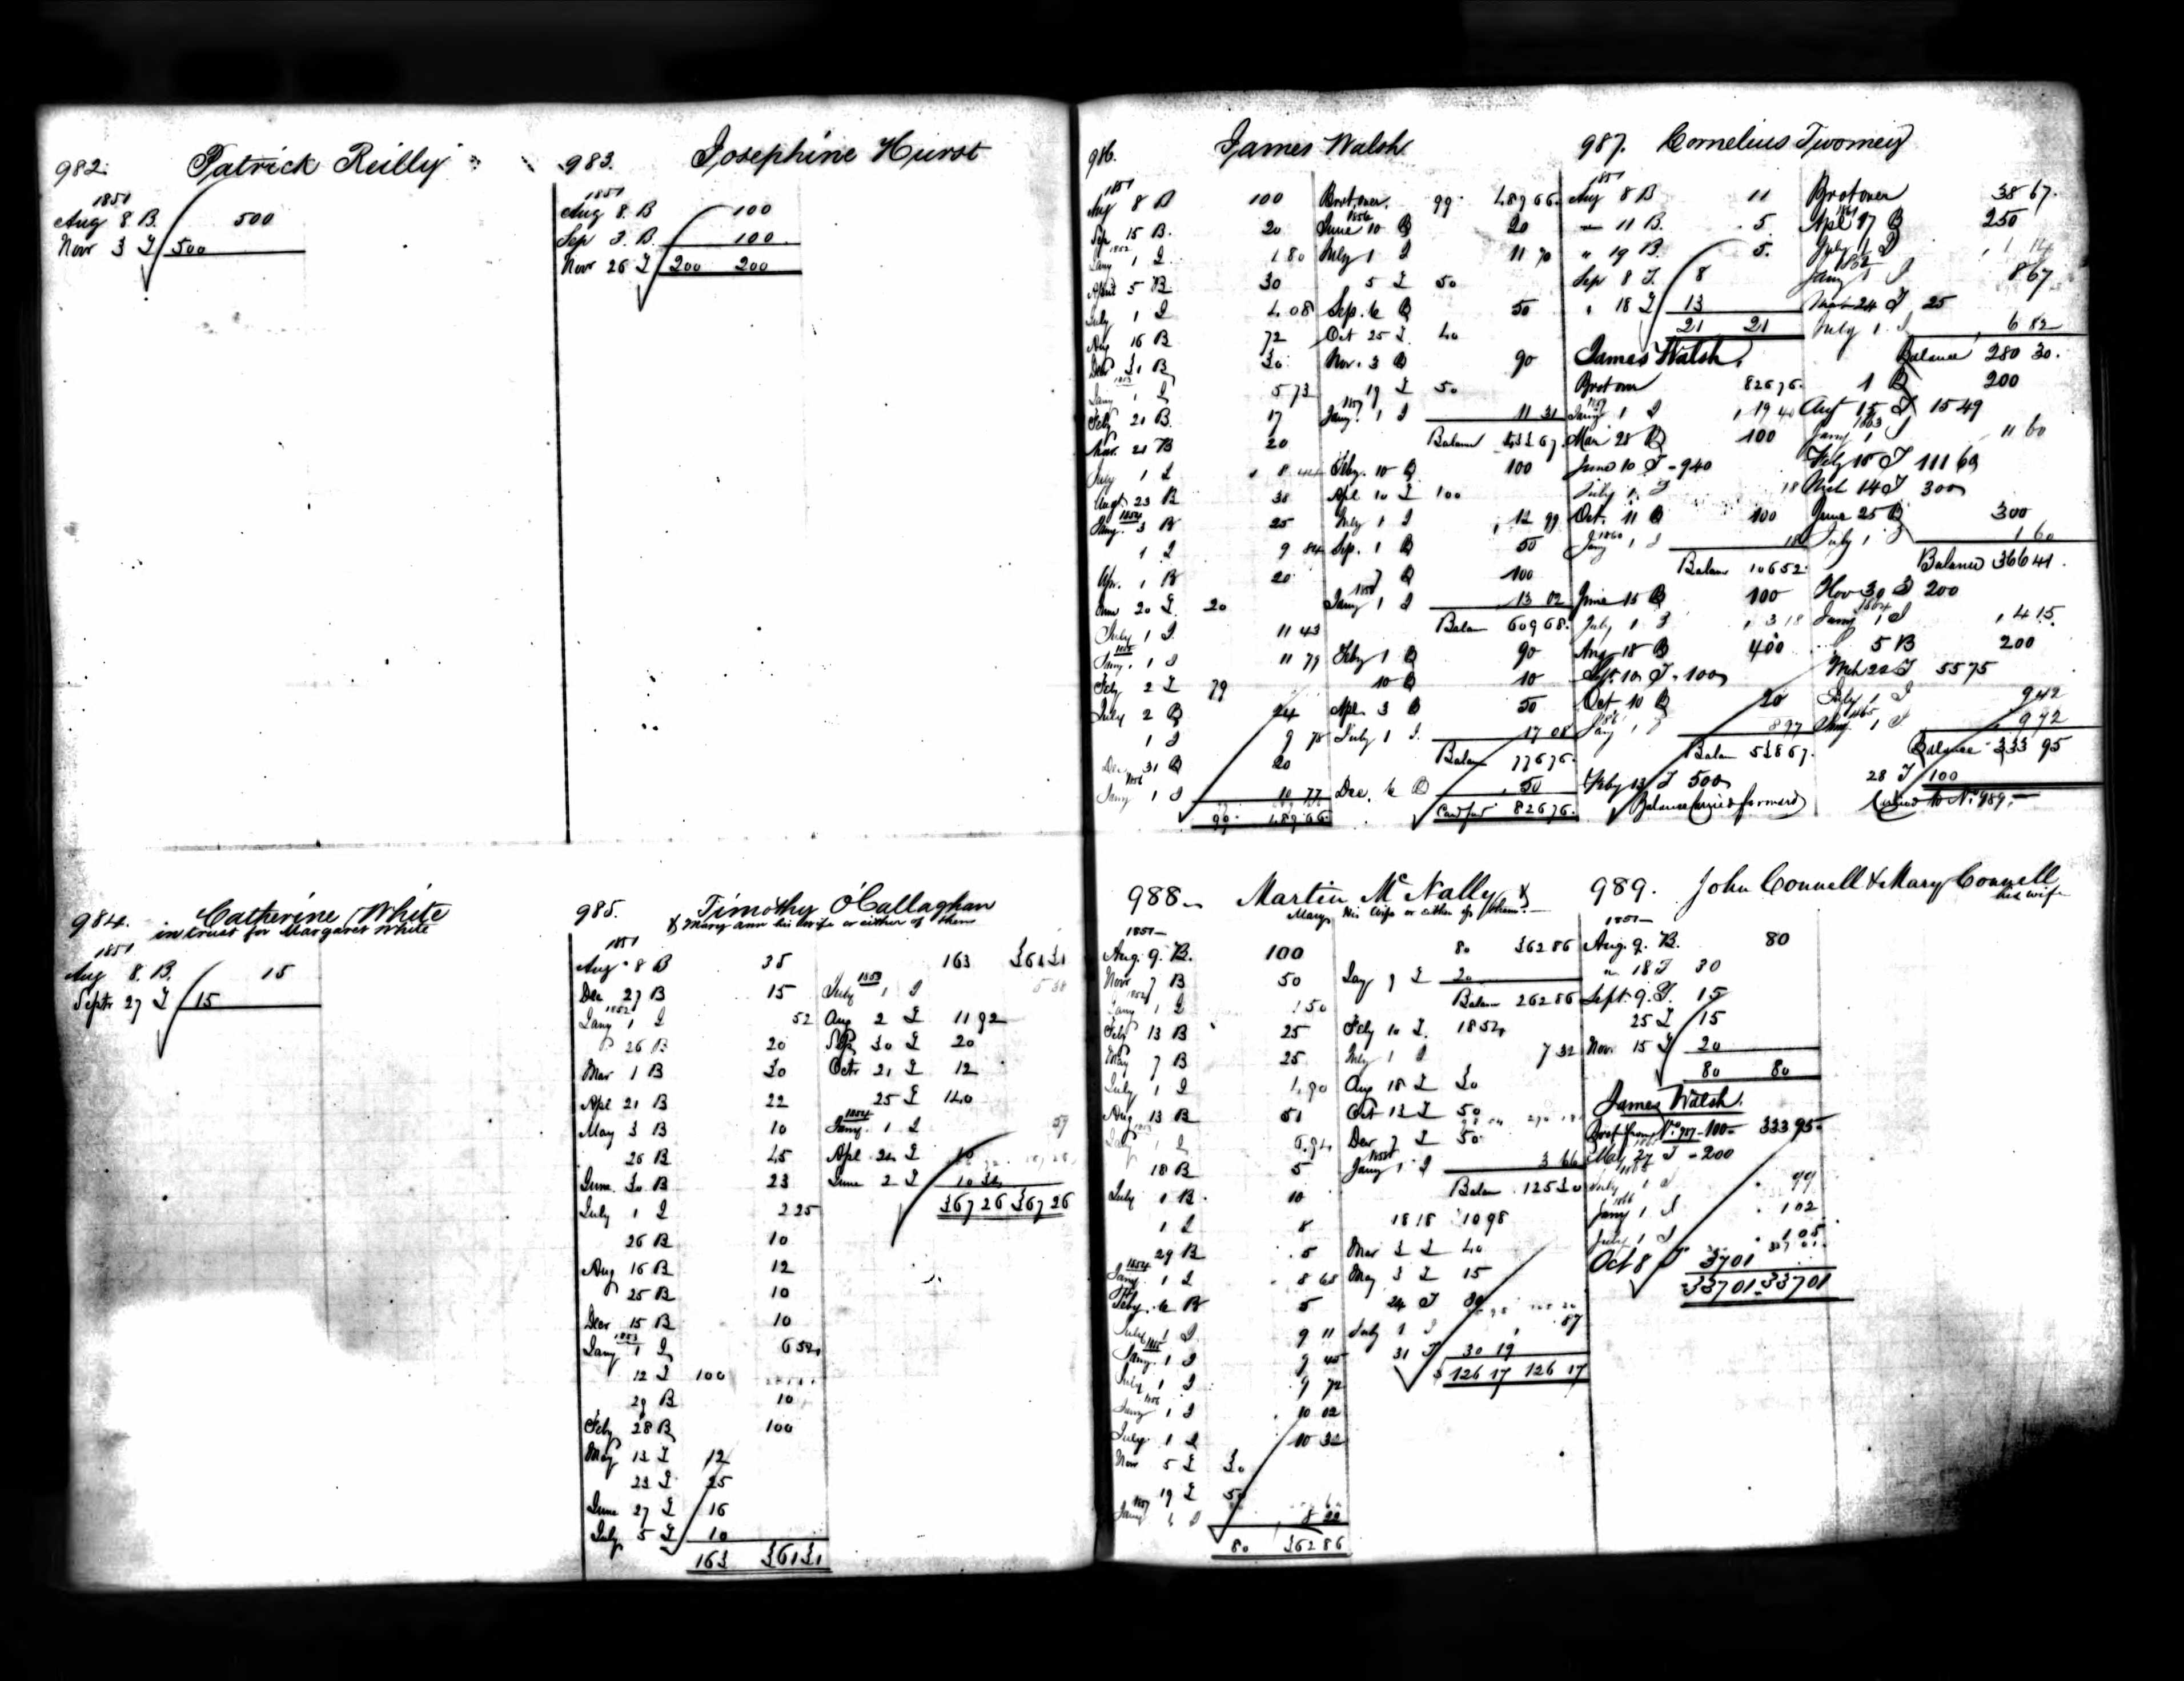 982. Patrick Reilly
1851
Aug 8 B. 500
Novr 3 I 500
983. Josephine Hurst
1851
Aug 8. B 100
Sep 3. B. 100.
Novr 26 I 200 200
984. Catherine White
in trust for Margaret White
1851
Aug 8. B. 15
Septr 27 I 15
985. Timothy O'Callaghan
& Mary Ann his wife or either of them
1851
Aug 8 B 35
Dec 27 B 15
1852
Jany 1 I 52
26 B 20
Mar 1 B 30
Apl 21 B 22
May 3 B 10
26 B 45
June 30 B 23
July 1 I 2 25
26 B 10
Aug 16 B 12
25 B 10
Decr 15 B 10
1853
Jany 1 I 6 54
12 I 100
29 B 10
Feby 28 B 100
May 13 I 12
23 I 25
June 27 I 16
July 5 I 10
163 361 31
163 361 31
1853
July 1 I 5 38
Aug 2 I 11 92
Sep 30 I 20
Octr 21 I 12
25 I 140
1854
Jany 1 I 57
Apl 24 I 10
June 2 I 10 34
367 26 367 26
986. James Walsh
1851
Aug 8 B 100
Sep 15 B. 20
1852
Jany 1 I. 1 80
April 5 B 30
July 1 I 4 08
Aug 16 B 72
Decr 31 B 30
1853
Jany 1 I 5 73
Feby 21 B. 17
Mar. 21 B 20
July 1 I 8 44
Augt 23 B 38
1854
Jany. 3 B 25
1 I 9 84
Apr. 1 B 20
June 20 I. 20
July 1 I. 11 43
1855
Jany. 1 I 11 79
Feby 2 I 79
July 2 B 24
1 I 9 78
Dec 31 B 20
1856
Jany 1 I 10 77
99 489 66
Brot over. 99 489 66.
1856
June 10 B 20
July 1 I 11 70
5 I 50
Sep. 6 B 50
Oct 25 I. 40
Nov. 3 B 90
19 I 50
1857
Jany. 1 I 11 31
Balance 433 67.
Feby. 10 B 100
Apl 10 I 100
July 1 I 12 99
Sep. 1 B 50
7 B 100
1858
Jany 1 I 13 02
Balan 609 68.
Feby 1 B 90
10 B 10
Apl. 3 B 50
July 1 I. 17 08
Balan 776 76.
Dec. 6 B 50
Card for'd 826 76.
987. Cornelius Twomey
1851
Aug 8 B 11
" 11 B. 5.
" 19 B. 5.
Sep 8 I. 8
" 18 I 13
21 21
James Walsh.
Brot over 826 76.
1859
Jany 1 I 19 40
Mar 28 B 100
June 10 I - 940
July 1. I 18
Oct. 11 B 100
1860
Jany 1 I 18
Balan 106 52.
June 15 B 100
July 1 I 3 18
Aug 18 B 400
Sept. 10 I. 100
Oct 10 B 20
1861
Jany 1 I 8 97
Balan 538 67.
Feby 13 I 500
Balance carried forward
Brot over 38 67.
1861
Apl 17 B 250
July 1 I 1 14
1862
Jany 1 I 8 67
Mar 24 I 25
July 1. I 6 82
Balance 280 30.
1 B 200
Augt 15 I 15 49
1863
Jany 1 I 11 60
Feby 10 I 111 60
Mch 14 I 300
June 25 B 300
July 1 I 1 60
Balance 366 41.
Nov 30 I 200
1864
Jany 1 I 4 15.
5 B 200
Mch 22 I 55 75
July 1 I 9 42
1865
Jany. 1 I 9 72
Balance 333 95
28 I 100
Carried to No. 989.
988. Martin McNally &
Mary his wife or either of them.
1851
Aug. 9. B. 100
Novr 7 B 50
1852
Jany 1 I 1 50
Feby 13 B 25
May 7 B 25
July 1 I 4.90
Aug 13 B 51
1853
Jany 1 I 6.94
18 B 5
July 1 B. 10
1 I 8
29 B 5
1854
Jany. 1 I 8 68
Feby. 6 B 5
July 1 I. 9 11
1855
Jany. 1 I 9 45
July 1 I 9 72
1856
Jany 1 I 10 02
July 1 I 10 32
Nov 5 I 30
19 I 50
1857
Jany 1 I 8 22
80 362 86
80 362 86
Jany 9 I 20
Balan 262 86
Feby 10 I. 18 54
July 1 I 7 32
Aug 18 I 30
Oct 13 I 50
Decr 7 I 50
1858
Jany 1 I 3 66
Balan 125 30
18 18 10 98
Mar 3 I 40
May 3 I 15
24 I 30
July 1 I 87
31 I 30 19
$ 126 17 126 17
989. John Connell & Mary Connell
his wife
1851
Aug. 9. B. 80
" 18 I 30
Sept. 9. I. 15
25 I 15
Nov. 15 I 20
80 80
James Walsh.
Brot from No. 987 - 100 - 333 95.
May 27 I - 200
July 1 I 99
1866
Jany 1 I 1 02
July 1 I 1 05
Oct 8 I 37 01
337 01 337 01